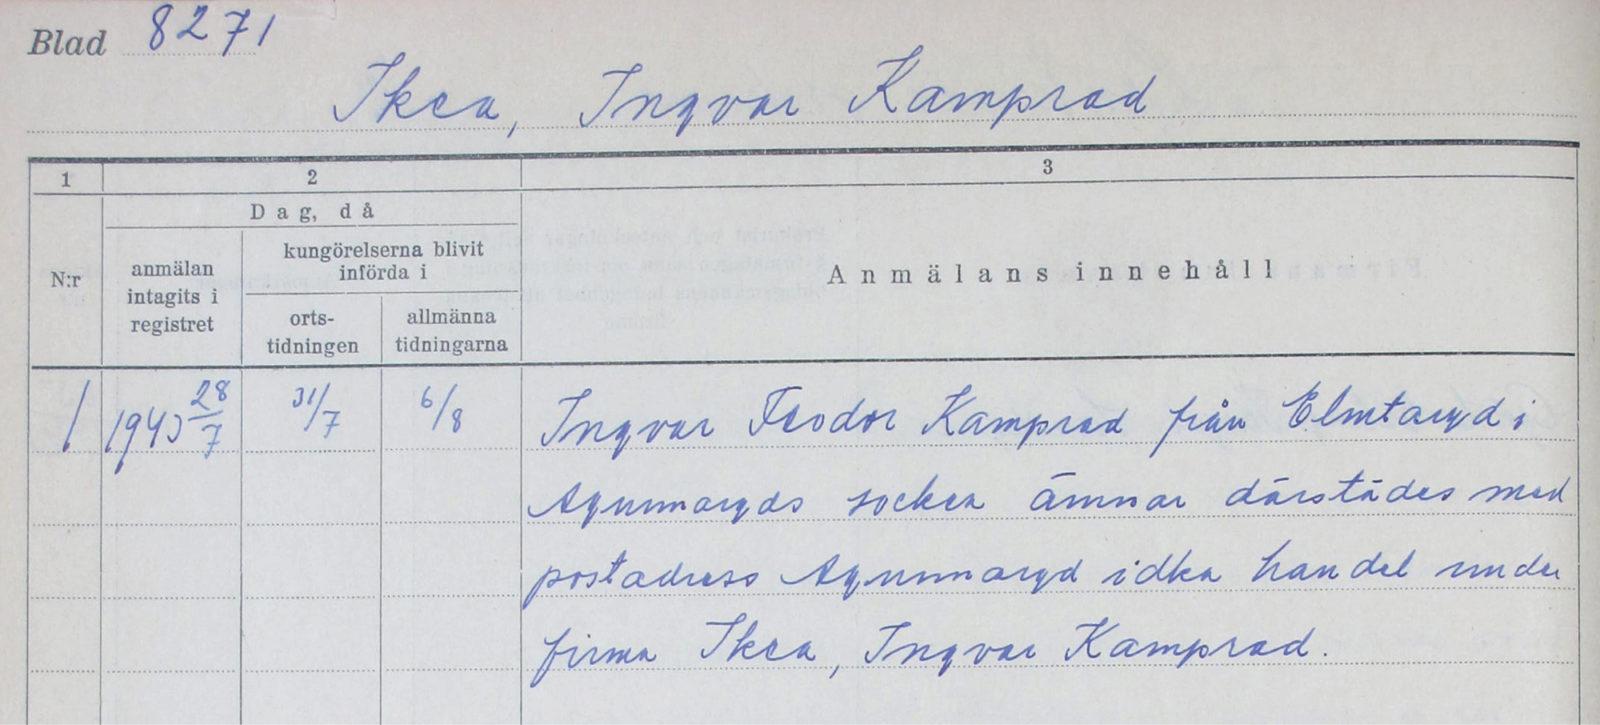 Blad 8271
Ikea, Ingvar Kamprad
1 2 3
Dag, då
kungörelserna blivit
införda i
N:r
anmälan
intagits i
registret
orts-
tidningen
allmänna
tidningarna
Anmälans innehåll
1 1943 28/7 31/7 6/8 Ingvar Feodor Kamprad från Elmtaryd i
Agunnaryds socken ämnar därstädes med
postadress Agunnaryd idka handel under
firma Ikea, Ingvar Kamprad.